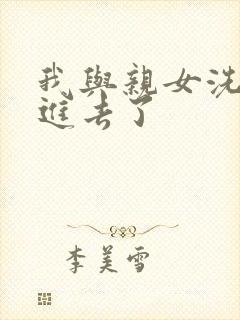 我與親女洗
進去了
李美雪